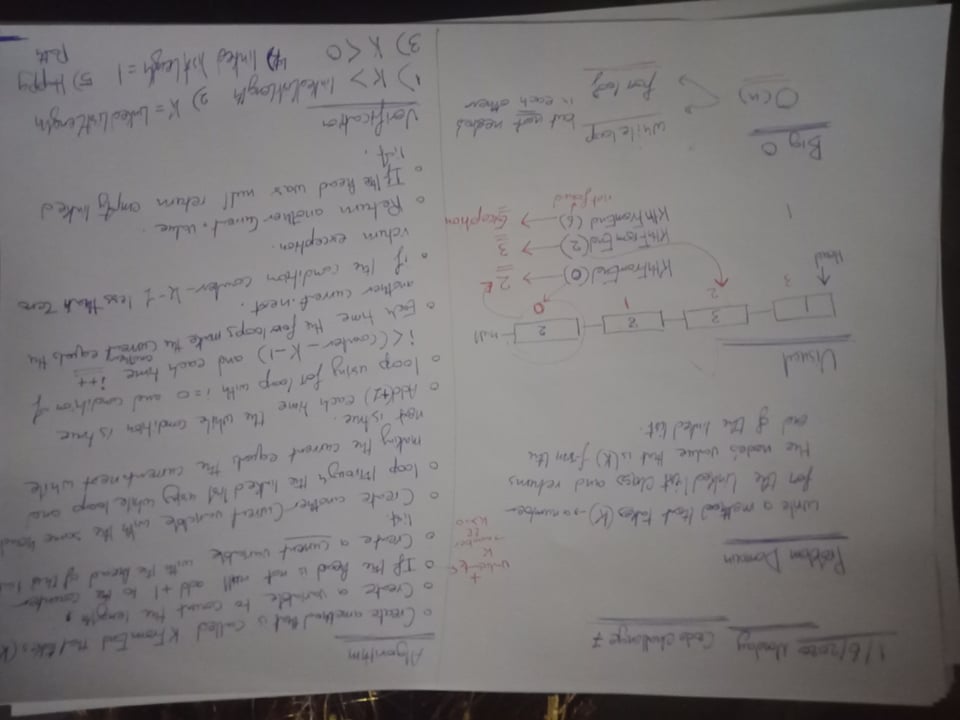 1/6/2020 Monday Code challenge 7
Problem Domain
write a method that takes (K) → a number
for the linked list class and returns
the node's value that is (K) from the
end of the linked list.
+
K
→ number
K>=0
Visual
1 3 8 2 null
3 2 1 0
Head
KthFromEnd(0) → 2
KthFromEnd(2) → 3
KthFromEnd(6) → Exception
not found
1
Big O
O(n)
while loop
for loop
but not nested
in each other
Algorithm
o Create a method that is called KFromEnd that takes (K
o Create a variable to count the length,
o If the head is not null add +1 to the counter
o Create a current variable with the head of that
list.
o Create another Current variable with the same head
o loop through the linked list using while loop and
making the current equals the current.next while
next is true.
o Add(+1) each time the while condition is true
o loop using for loop with i=0 and condition of
i<(counter-K-1) and each time i++
o Each time the for loops make the another current equals the
another current.next.
o if the condition counter-k-1 less than zero
return exception.
o Return another Current.value.
o If the head was null return empty linked
list.
Verification
1) K > linkedListLength 2) K = linkedListLength
3) K<0 4) linked list length = 1 5) Happy
Path